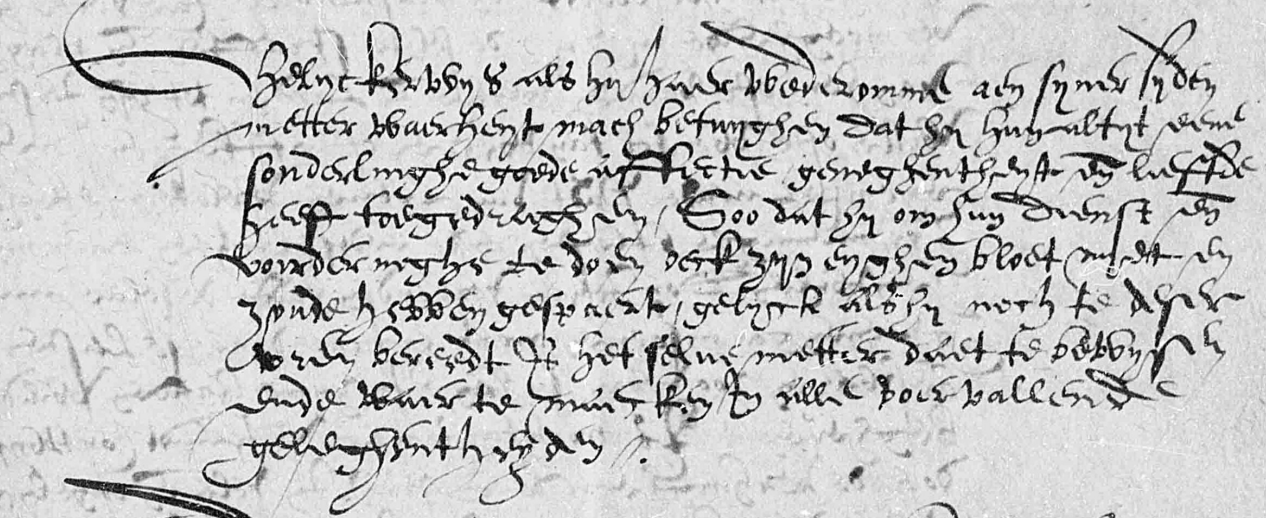 Ghelyckerwys als hy haer wederomme aen syner syden
metter waerheyt mach betuyghen dat hy hun altyt eene
sonderlinghe goede affectie geneghentheyt en̄ lieffde
heeft toegedraghen, Soo dat hy om hun dienst en̄
voirderinghe te doen oeck zyn eyghen bloet niet en
zoude hebben gespaert, gelyck als hy noch te deser
uren bereedt Is het selve metter daet te bewysen
ende waer te maecken In alle voervallende
geleghentheyden